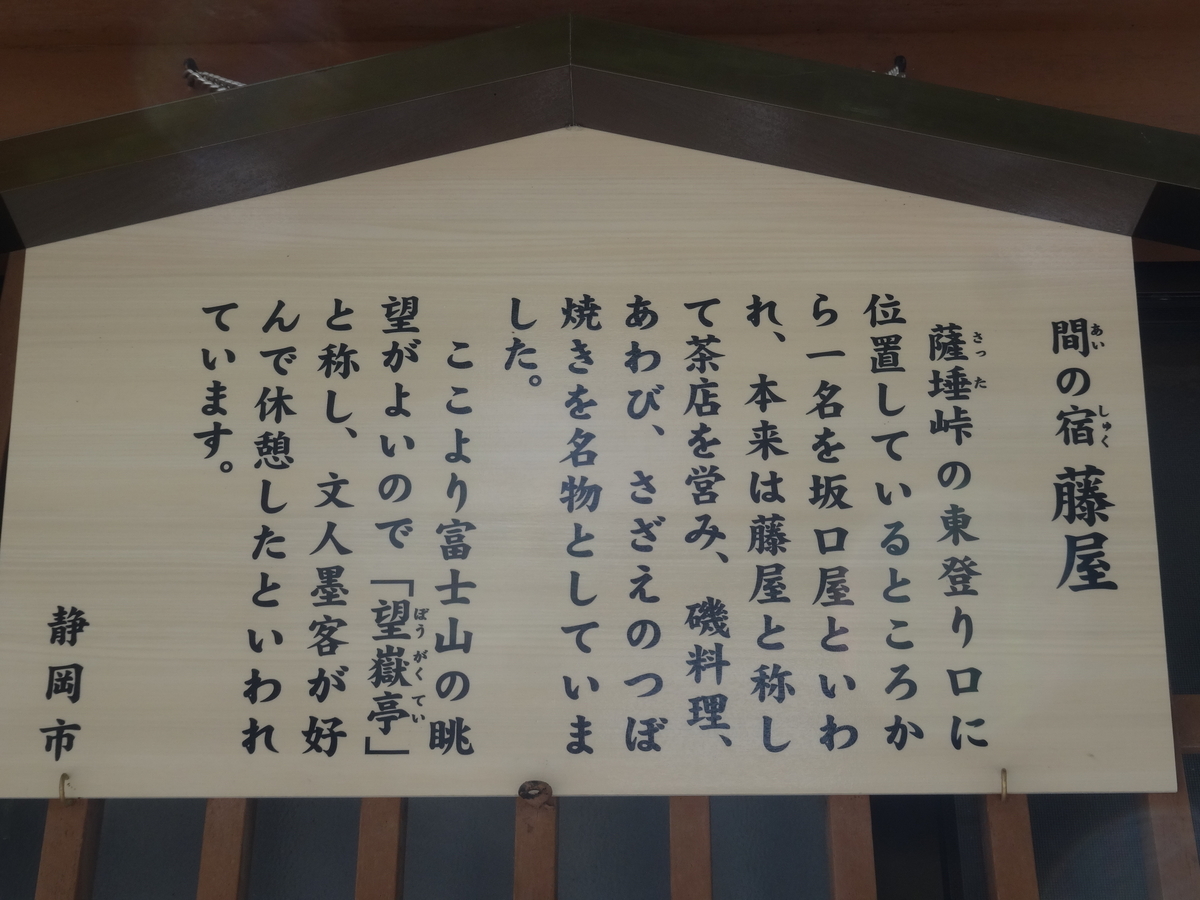 間の宿 藤屋
あい しゅく
薩埵峠の東登り口に
さっ た
位置しているところか
ら一名を坂口屋といわ
れ、本来は藤屋と称し
て茶店を営み、磯料理、
あわび、さざえのつぼ
焼きを名物としていま
した。
ここより富士山の眺
望がよいので「望嶽亭」
ぼう がく てい
と称し、文人墨客が好
んで休憩したといわれ
ています。
静岡市